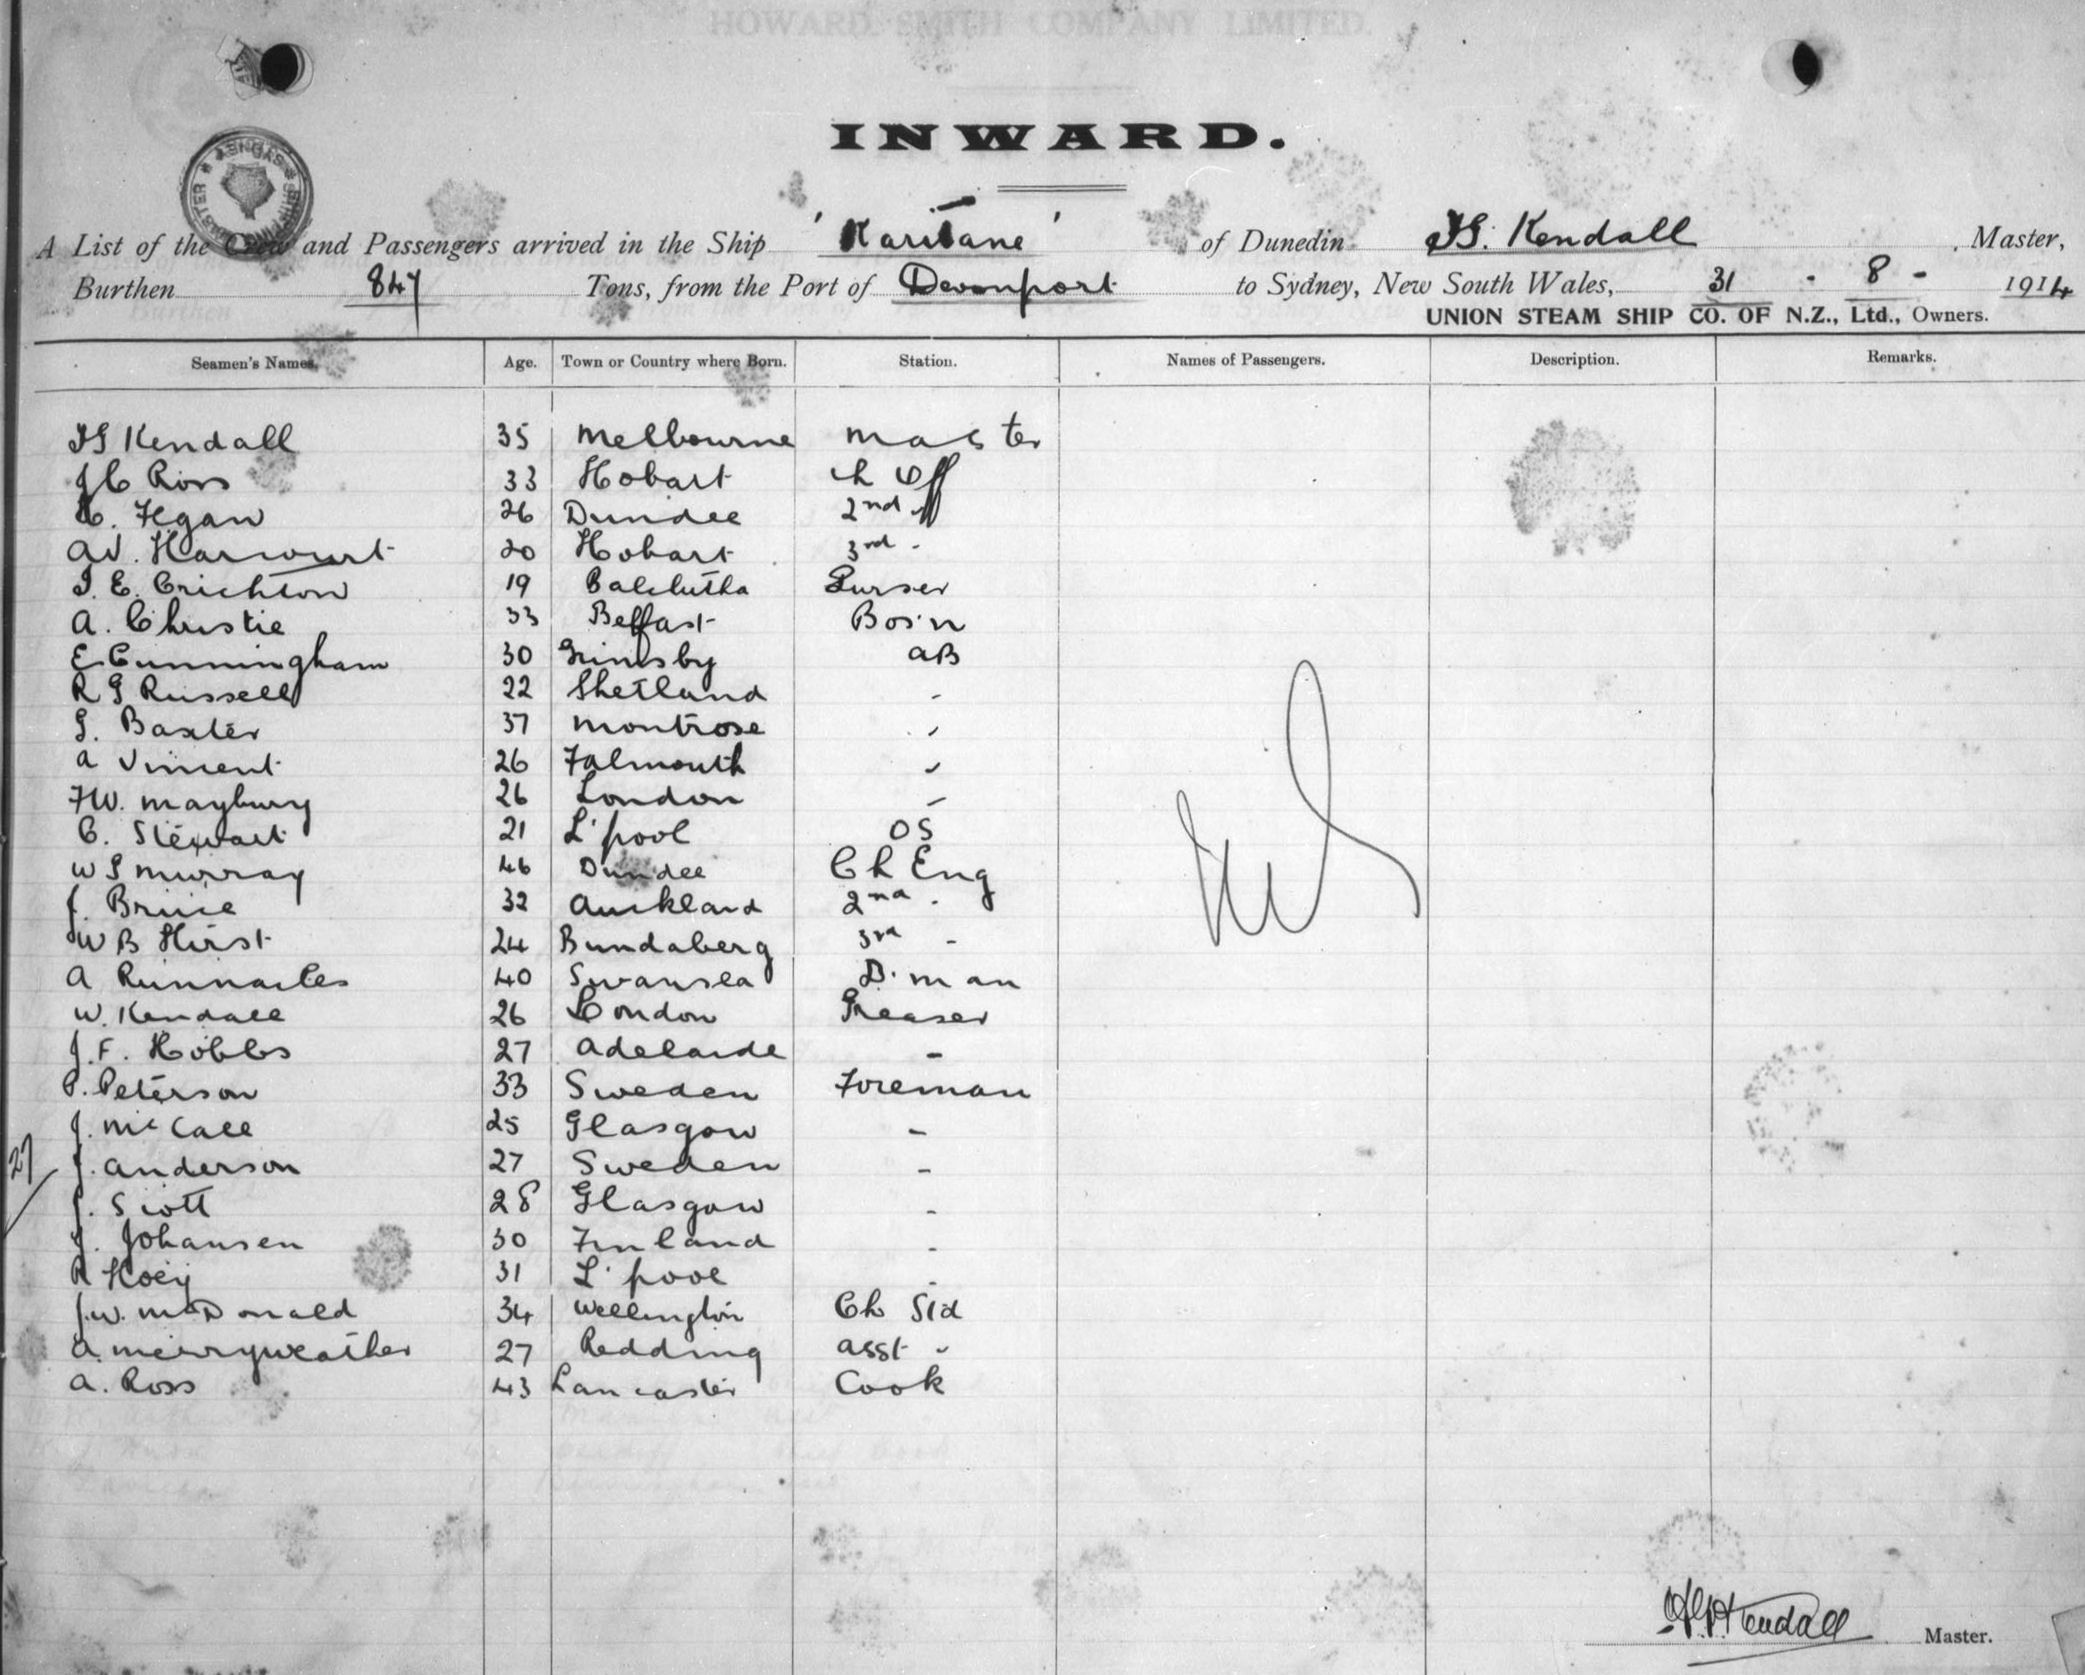 HOWARD SMITH COMPANY LIMITED.
INWARD.
A List of the Crew and Passengers arrived in the Ship 'Karitane' of Dunedin H.G. Kendall Master,
Burthen 847 Tons, from the Port of Devonport to Sydney, New South Wales, 31 - 8 - 1914
UNION STEAM SHIP CO. OF N.Z., Ltd., Owners.
Seamen's Names. Age. Town or Country where Born. Station. Names of Passengers. Description. Remarks.
HG Kendall 35 Melbourne Master
JC Ross 33 Hobart Ch Off
C. Hgan 26 Dundee 2nd Off
AV. Harcourt 20 Hobart 3rd -
I. E. Crichton 19 Balclutha Purser
A. Christie 33 Belfast Bos'n
E Cunningham 30 Grimsby AB
R G Russell 22 Shetland -
G. Baxter 37 Montrose "
A Vincent 26 Falmouth "
FW. Maybury 26 London -
C. Stewart 21 L'pool OS
W S Murray 46 Dundee Ch Eng
J. Bruce 32 Auckland 2nd -
W B Hirst 24 Bundaberg 3rd -
A Runnacles 40 Swansea D. man
W. Kendall 26 London Greaser
J. F. Hobbs 27 Adelaide -
P. Peterson 33 Sweden Foreman
J. McCall 25 Glasgow -
27 J. Anderson 27 Sweden -
J. Scott 28 Glasgow -
J. Johansen 30 Finland -
R Hoey 31 L'pool -
J.W. McDonald 34 Wellington Ch Std
A. Merryweather 27 Redding Asst "
A. Ross 43 Lancaster Cook
Nil
HG Kendall Master.